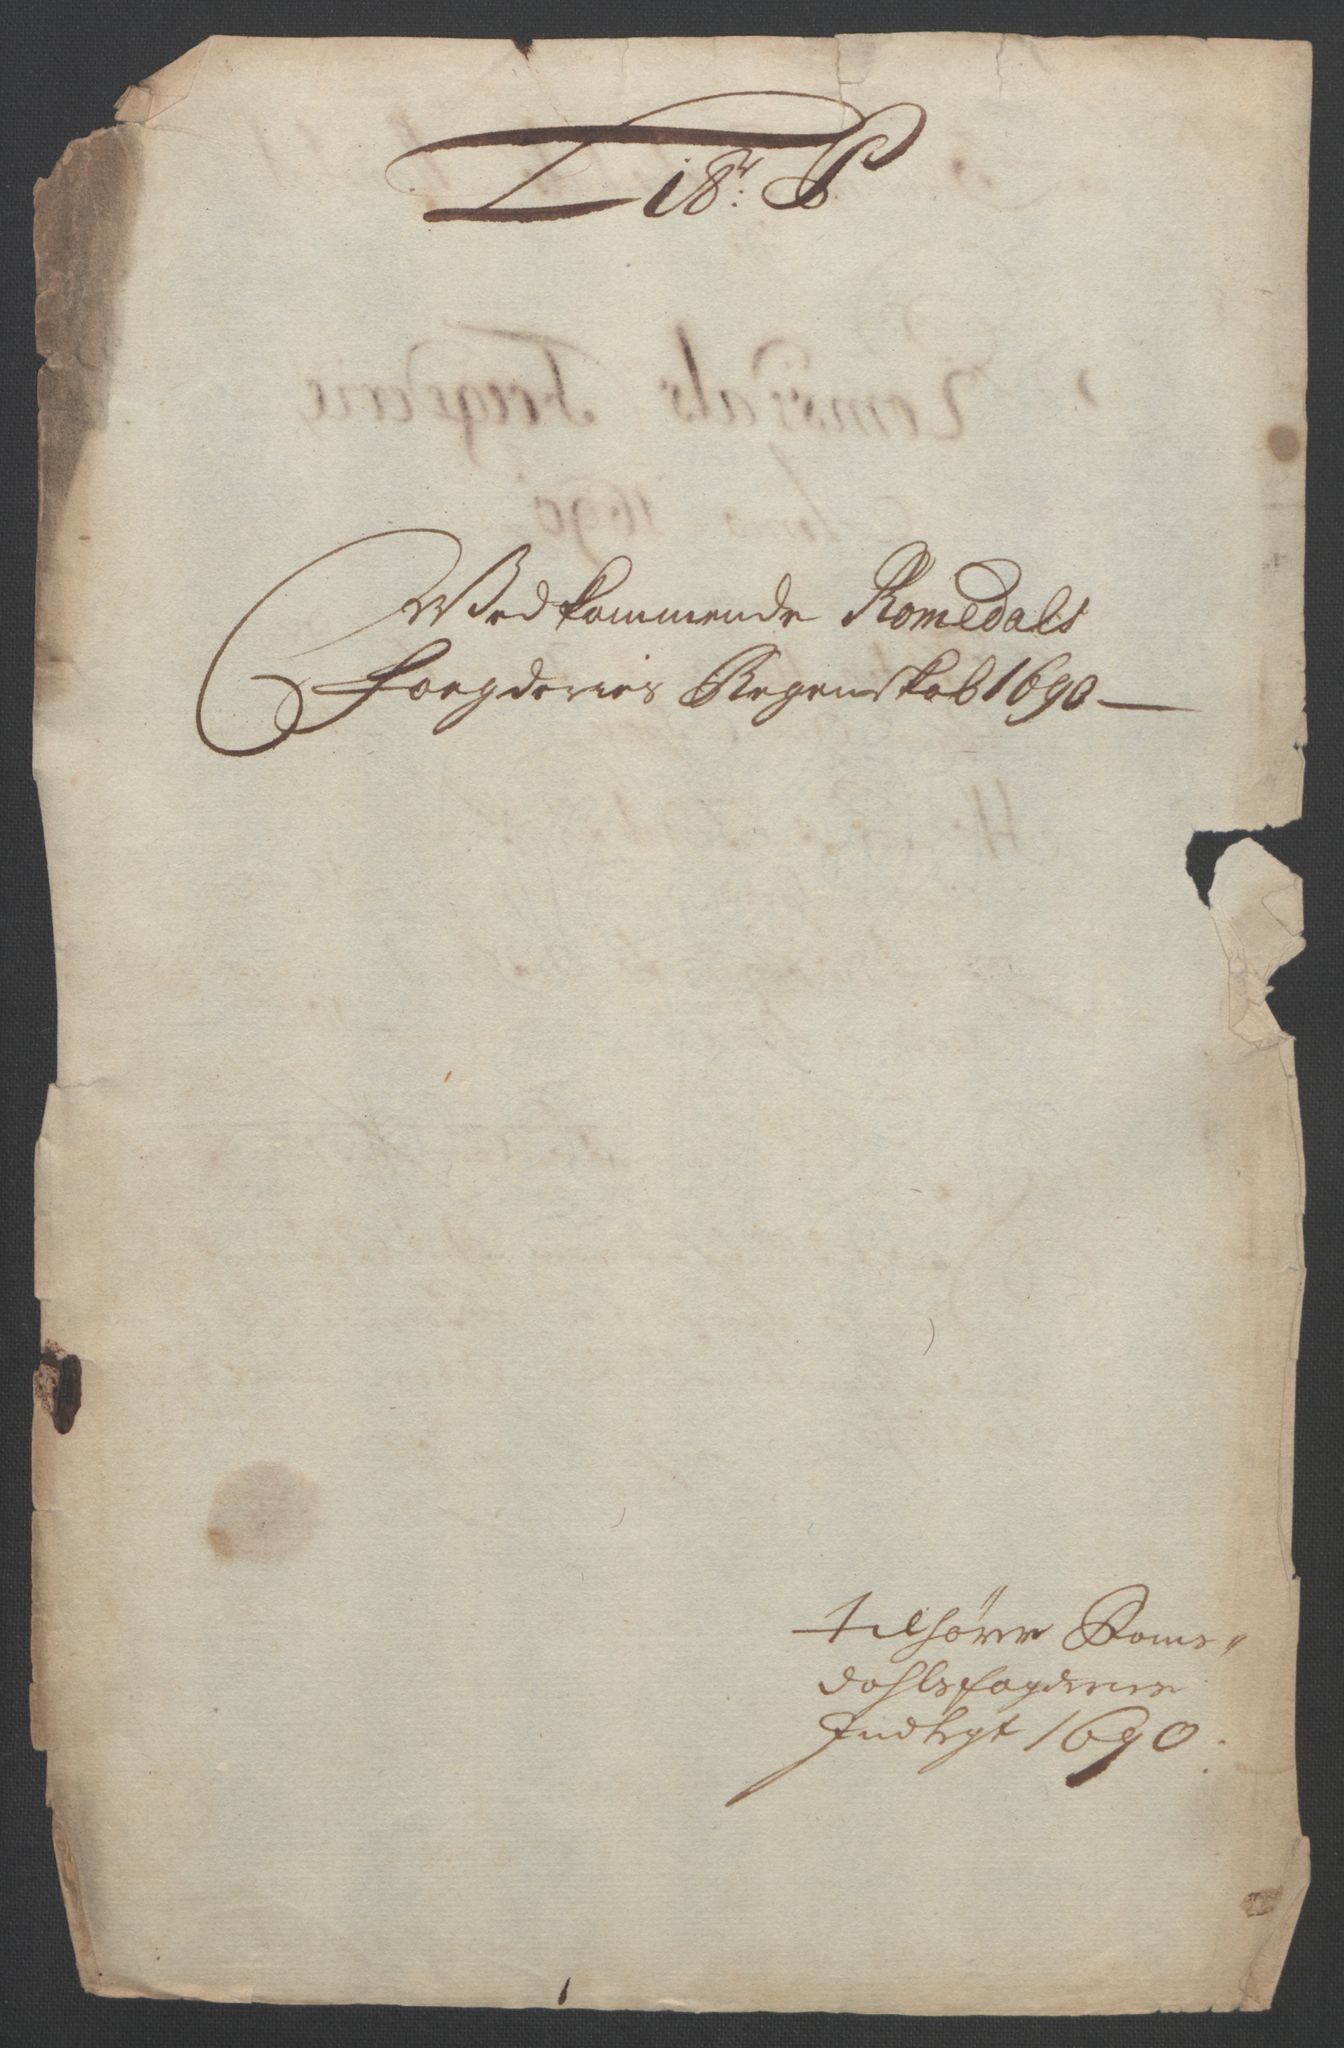 18
Vedkommende Romsdals
Foegderies Regenskab 1690
tilhörer Roms-
dahls fogderies
Indtegt 1690.